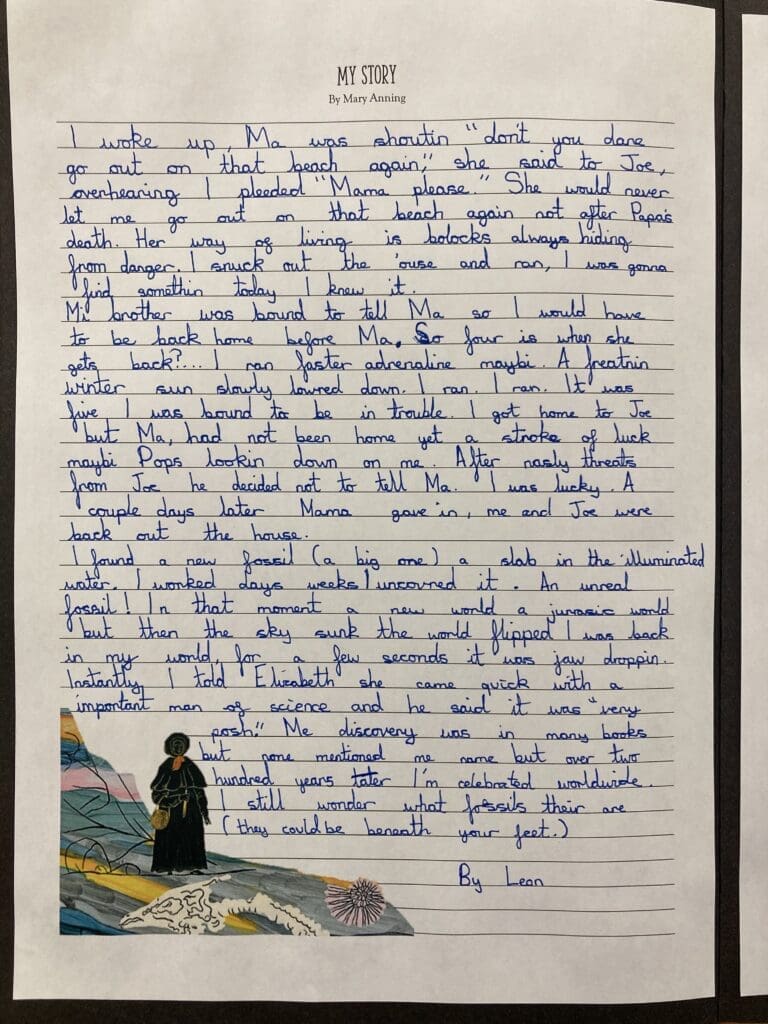 MY STORY
By Mary Anning
I woke up, Ma was shoutin "don't you dare
go out on that beach again," she said to Joe,
overhearing I pleeded "Mama please." She would never
let me go out on that beach again not after Papa's
death. Her way of living is bolocks always hiding
from danger. I snuck out the 'ouse and ran, I was gonna
find somethin today I knew it.
Mi brother was bound to tell Ma so I would have
to be back home before Ma. So four is when she
gets back?... I ran faster adrenaline maybi. A freatnin
winter sun slowly lowred down. I ran. I ran. It was
five I was bound to be in trouble. I got home to Joe
but Ma, had not been home yet a stroke of luck
maybi Pops lookin down on me. After nasly threats
from Joe he decided not to tell Ma. I was lucky. A
couple days later Mama gave in, me and Joe were
back out the house.
I found a new fossil (a big one) a slab in the illuminated
water. I worked days weeks I uncovred it. An unreal
fossil! In that moment a new world a jurasic world
but then the sky sunk the world flipped I was back
in my world, for a few seconds it was jaw droppin.
Instantly I told Elizabeth she came quick with a
important man of science and he said it was "very
posh!" Me discovery was in many books
but none mentioned me name but over two
hundred years later I'm celebrated worldwide.
I still wonder what fossils their are
(they could be beneath your feet.)
By Leon